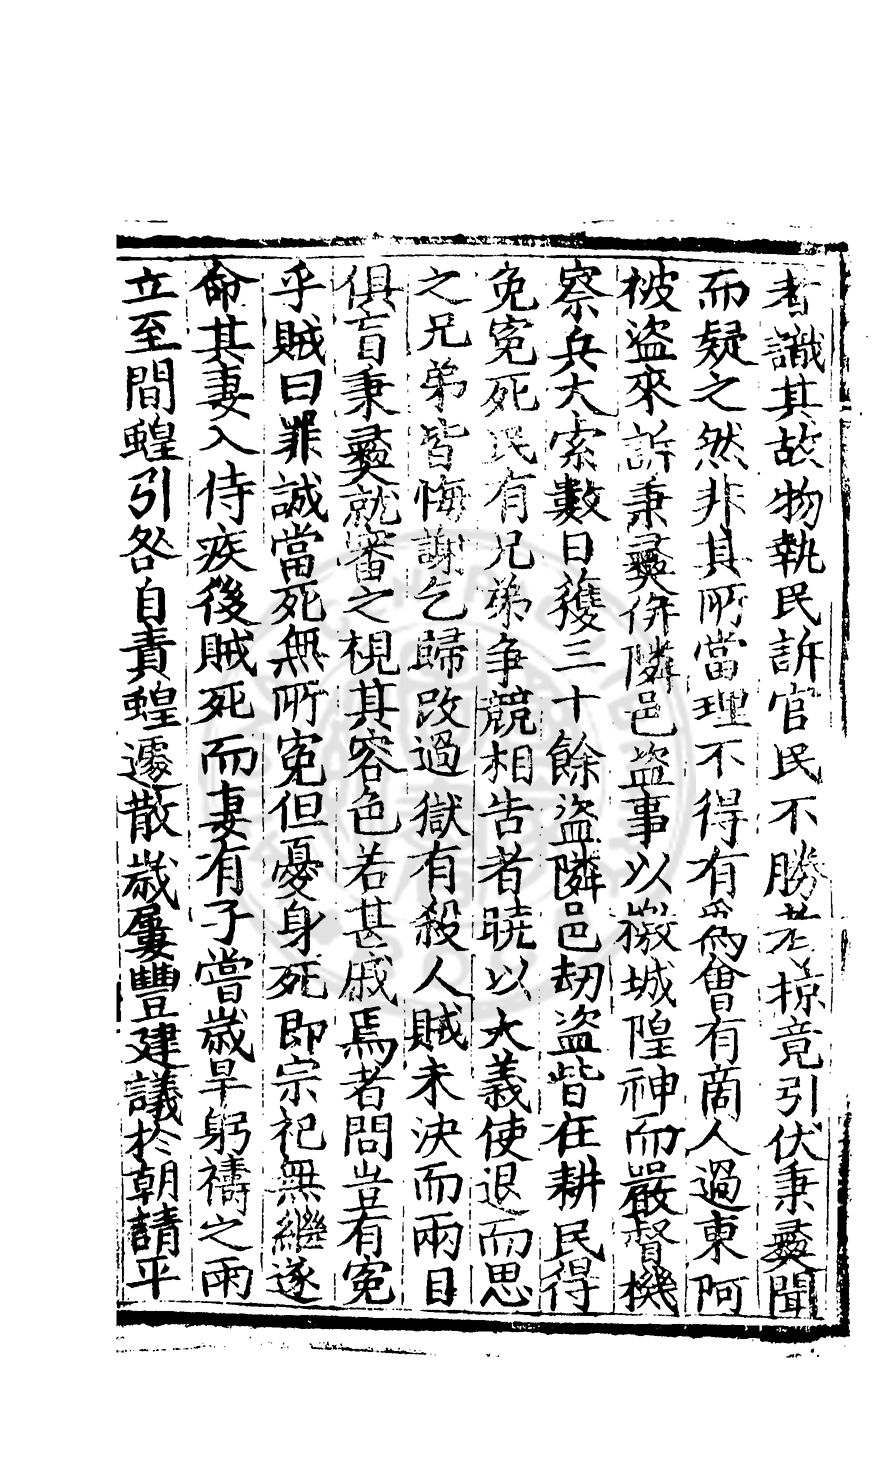 者識其故物執民訴官民不勝考掠竟引伏秉彛聞
而疑之然非其所當理不得有爲會有商人過東阿
被盗來訴秉彛併隣邑盗事以檄城隍神而嚴督機
察兵大索數日獲三十餘盗隣邑刼盗皆在耕民得
免寃死民有兄弟争競相告者曉以大義使退而思
之兄弟皆悔謝乞歸改過獄有殺人賊未決而兩目
俱盲秉彛就審之視其容色若甚戚焉者問豈有寃
乎賊曰罪誠當死無所寃但憂身死即宗祀無繼遂
命其妻入侍疾後賊死而妻有子嘗歲旱躬禱之雨
立至間蝗引咎自責蝗遽散歲屢豐建議於朝請平